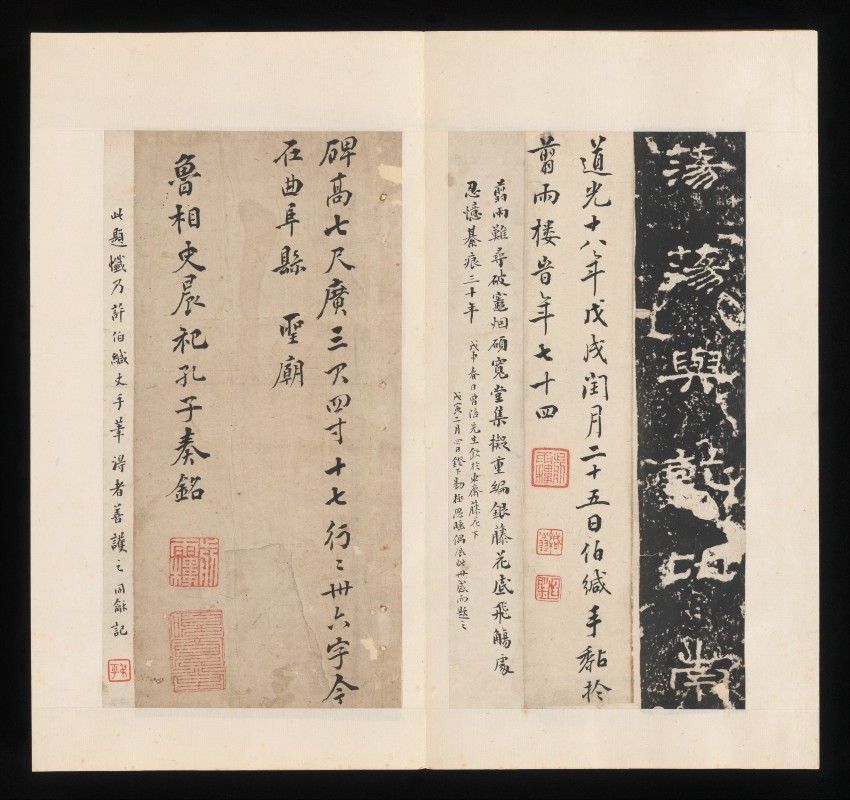 蕩蕩與乾比崇
道光十八年戊戌閏月二十五日伯緘手黏於
翦雨樓旹年七十四
翦雨難尋破竈烟碩寬堂集擬重編銀藤花底飛觴處
忍憶綦痕三十年
戊申春日曾浩先生飲於東齋藤花下
戊寅二月四日鐙下勘極思確偶展此冊感而題之
碑高七尺廣三尺四寸十七行二卅六字今
在曲阜縣 聖廟
魯相史晨祀孔子奏銘
此題懺乃許伯緘丈手筆得者善護之同龢記